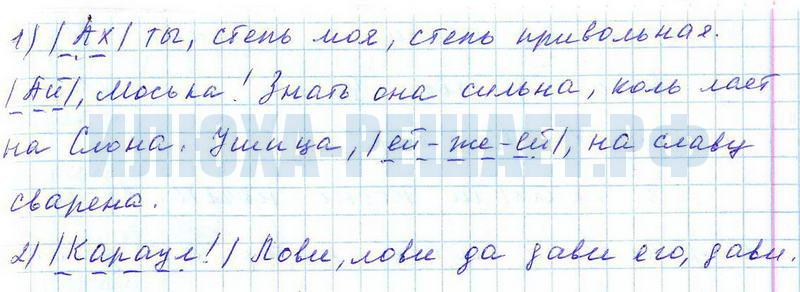 1) |Ах| ты, степь моя, степь привольная.
|Ай|, Моська! Знать она сильна, коль лает
на Слона. Ушица, |ей-же-ей|, на славу
сварена.
2) |Караул!| Лови, лови да дави его, дави.
ИЛЮХА-РЕШАЕТ.РФ